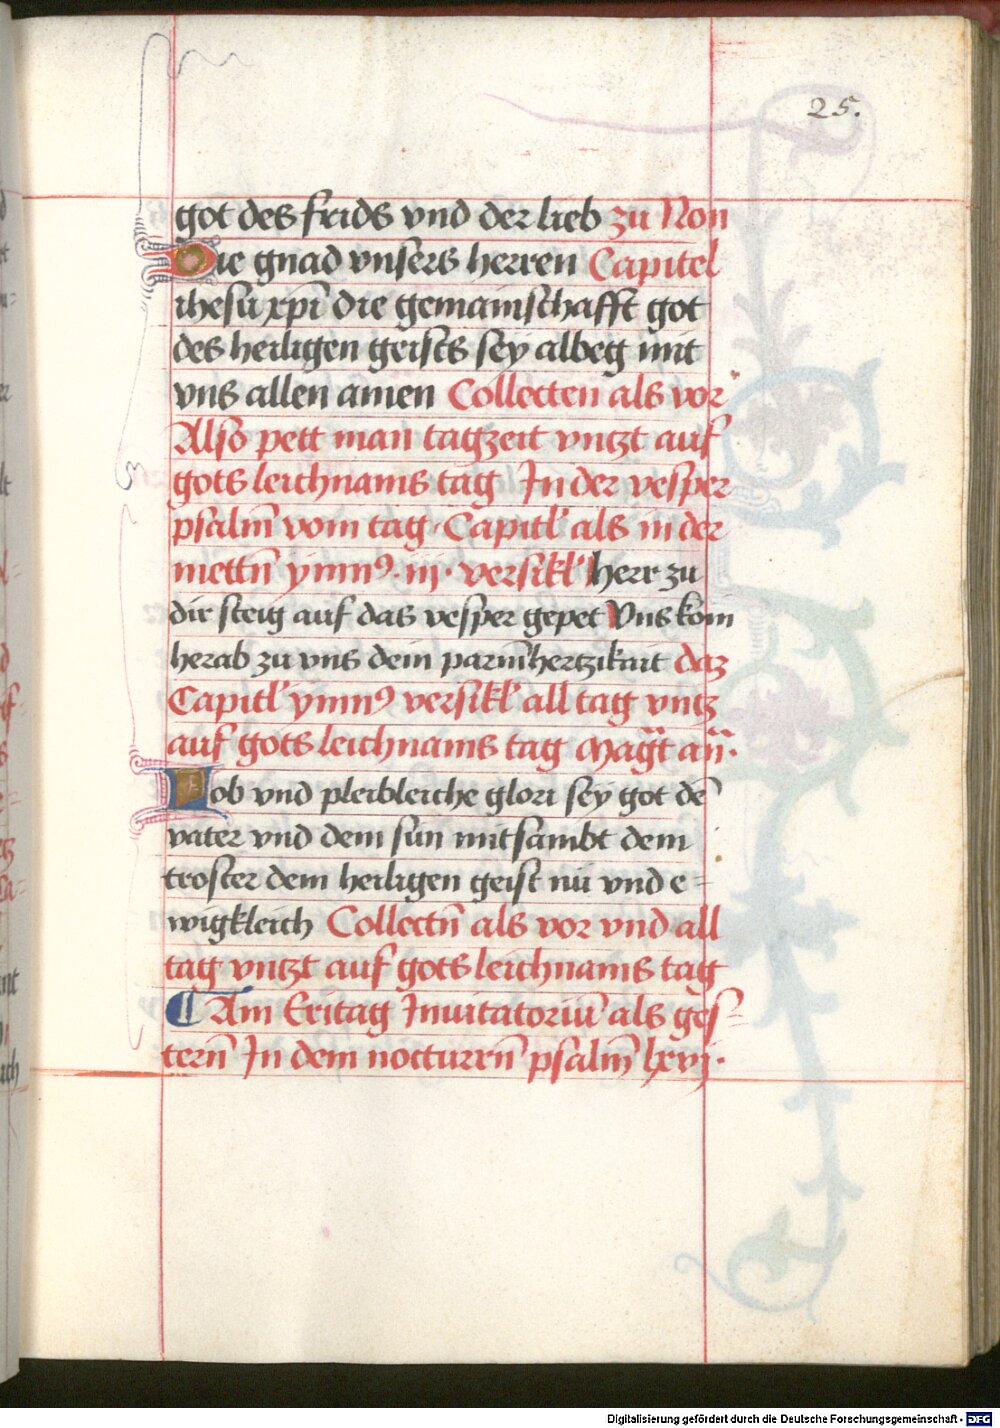 25.
got des frids vnd der lieb zu Non
Die gnad vnsers herren Capitel
ihesu xpi die gemainschafft got
des heiligen geists sey albeg mit
vns allen amen Collecten als vor
Also pett man tagzeit vntzt auf
gots leichnams tag In der vesper
psalm̄ vom tag · Capitl̕ als in der
mettn̄ ymnꝰ · iij · versikl̕ herr zu
dir steig auf das vesper gepet Vns kom
herab zu vns dein parm̄hertzikait daz
Capitl̕ ymnꝰ versikl̕ all tag vntz
auf gots leichnams tag Mag̃t an̄ ·
Lob vnd pleibleiche glori sey got dē
vater vnd dem sun mitsambt dem
troster dem heiligen geist nu vnd e-
wigkleich Collectn̄ als vor vnd all
tag vntzt auf gots leichnams tag
¶ Am Eritag Inuitatoriū als ges-
tern̄ In dem nocturrn̄ psalm̄ lxvj ·
Digitalisierung gefördert durch die Deutsche Forschungsgemeinschaft - DFG